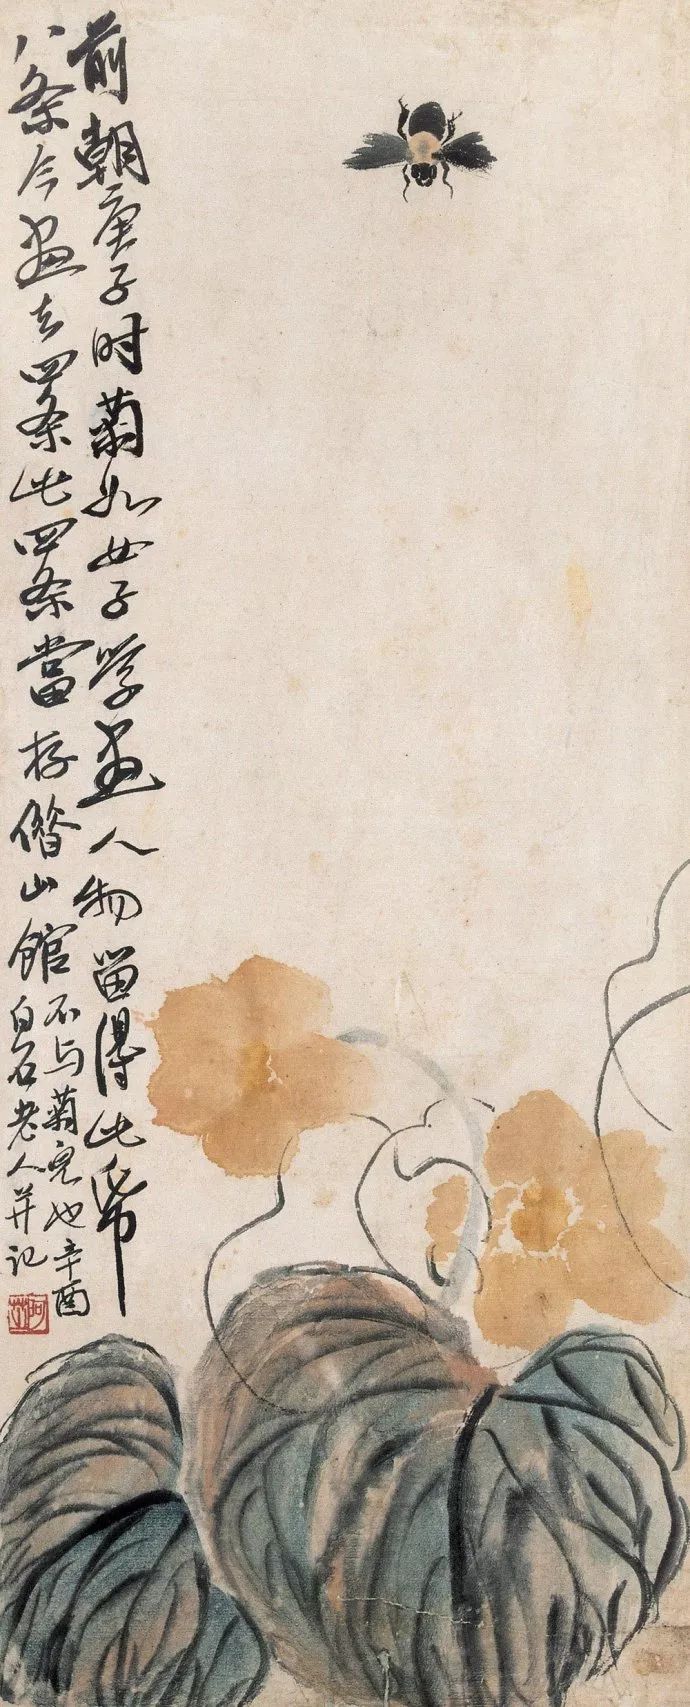 前朝庚子时菊如女子学画人物畱得此帋
八条今画去四条此四条當存借山館
不与菊兒也辛酉
白石老人并记
阿芝